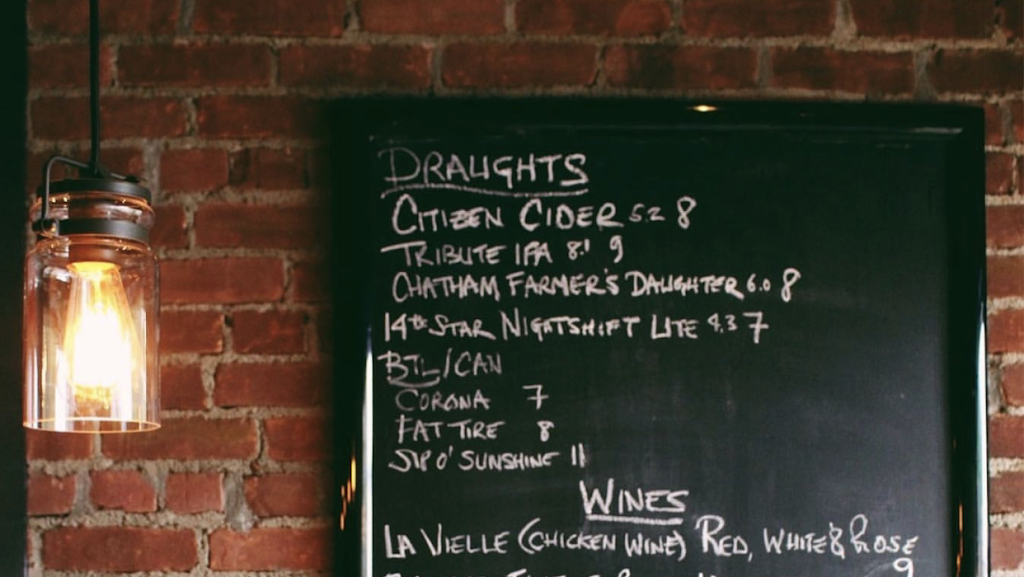 DRAUGHTS
CITIZEN CIDER 5.2 8
TRIBUTE IPA 8.1 9
CHATHAM FARMER'S DAUGHTER 6.0 8
14th STAR NIGHTSHIFT LITE 4.3 7
BTL/CAN
CORONA 7
FAT TIRE 8
SIP O' SUNSHINE 11
WINES
LA VIELLE (CHICKEN WINE) RED, WHITE & ROSE
9